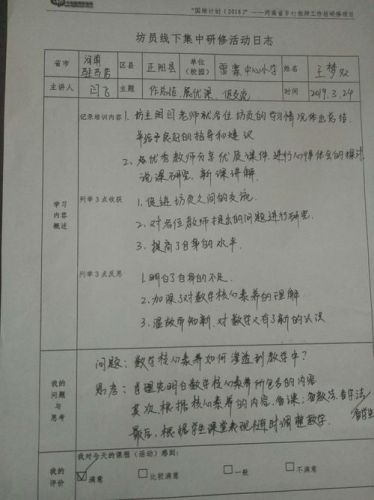 “国培计划（2018）”——河南省乡村教师工作坊研修项目
坊员线下集中研修活动日志
省市 河南 驻马店 区县 正阳县 单位（校园） 雷寨中心小学 姓名 王梦
主讲人 闫飞 主题 作总结、展优课、促交流 时间 2019.3.24
学习内容概述
记录培训内容 1. 坊主闫老师就各位坊员的学习情况作出总结，
并给予良好的指导和建议
2. 各优秀教师分享优质课件，进行心得体会的探讨
说课研究，新课讲解.
列举3点收获 1. 促进坊员之间的交流
2. 对各位教师提出的问题进行研究
3. 提高了自身的水平
列举3点反思 1. 明白了自身的不足
2. 加深了对数学核心素养的理解
3. 温故而知新，对数学又有了新的认识
我的问题与思考
问题：数学核心素养如何渗透到数学中？
思考：首理先明白数学核心素养所包含的内容
其次，根据核心素养的内容，备课，备教法，备学法
备学生
最后，根据学生课堂表现随时调整教学.
我的评价
我对今天的课程（活动）感到：
☑满意 □比较满意 □一般 □不满意